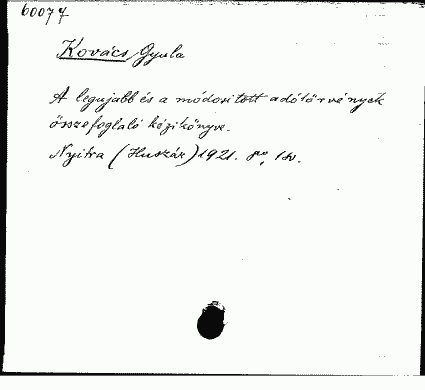 60074
Kovács Gyula
A legujabb és a módositott adótörvények
összefoglaló kézikönyve.
Nyitra (Huszár) 1921. 8°, 1 sv.